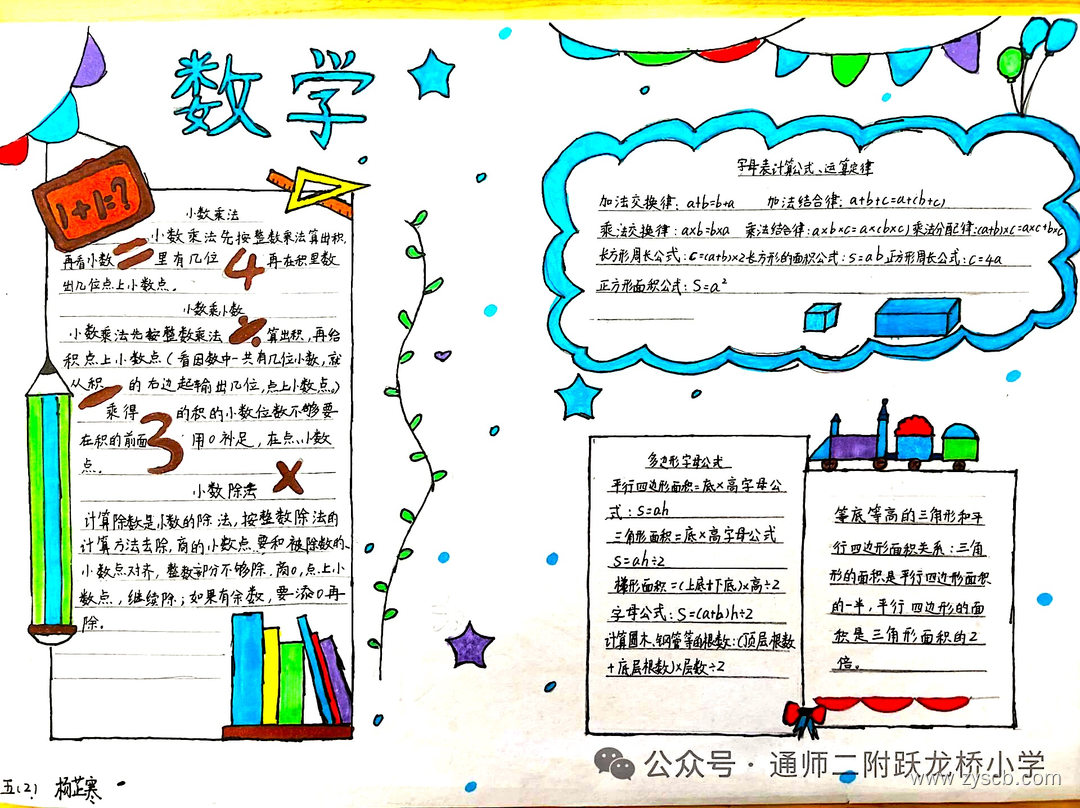 数学
1+1=?
小数乘法
小数乘法先按整数乘法算出积,
再看小数里有几位再在积里数
出几位点上小数点。
小数乘小数
小数乘法先按整数乘法算出积,再给
积点上小数点(看因数中一共有几位小数,就
从积的右边起输出几位,点上小数点)
乘得的积的小数位数不够要
在积的前面用0补足,在点小数
点。
小数除法
计算除数是小数的除法,按整数除法的
计算方法去除,商的小数点要和被除数的
小数点对齐,整数部分不够除,商0,点上小
数点,继续除;如果有余数,要添0再
除。
二
4
3
×
五(2) 杨芷寒
字母表计算公式、运算定律
加法交换律:a+b=b+a 加法结合律:a+b+c=a+(b+c)
乘法交换律:a×b=b×a 乘法结合律:a×b×c=a×(b×c)乘法分配律:(a+b)×c=a×c+b×c
长方形周长公式:c=(a+b)×2长方形的面积公式:S=ab正方形周长公式:c=4a
正方形面积公式:S=a²
多边形字母公式
平行四边形面积=底×高字母公
式:S=ah
三角形面积=底×高字母公式
S=ah÷2
梯形面积=(上底+下底)×高÷2
字母公式:S=(a+b)h÷2
计算圆木、钢管等的根数:(顶层根数
+底层根数)×层数÷2
等底等高的三角形和平
行四边形面积关系:三角
形的面积是平行四边形面积
的一半,平行四边形的面
积是三角形面积的2
倍。
公众号·通师二附跃龙桥小学
www.zyscb.com